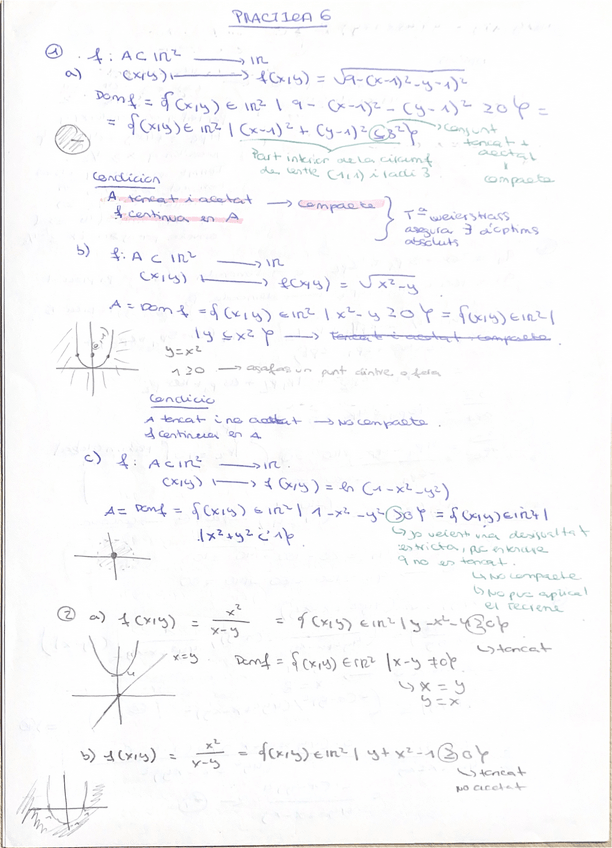 PRACTICA 6
① f: A⊂ℝ² → ℝ
a) (x,y) ⟼ f(x,y) = √9-(x-1)²-y-1)²
Dom f = {(x,y) ∈ ℝ² | 9 - (x-1)² - (y-1)² ≥ 0} =
= {(x,y) ∈ ℝ² | (x-1)² + (y-1)² ≤ 3²}
conjunt
tancat +
acotat
compacte
Part interior de la circumf
de centre (1,1) i radi 3
Condicion
A tancat i acotat → compacte
f continua en A
Tª Weierstrass
asegura ∃ d'òptims
absoluts
b) f: A ⊂ ℝ² → ℝ
(x,y) ⟼ f(x,y) = √x²-y
A = Dom f = {(x,y) ∈ ℝ² | x²-y ≥ 0} = {(x,y) ∈ ℝ² |
| y ≤ x²} → Tancat i acotat: compacte.
y = x²
1 ≥ 0 → agafar un punt dintre o fora
Condicio
A tancat i no acotat → No compacte.
f continua en A
c) f: A⊂ℝ² → ℝ.
(x,y) ⟼ f(x,y) = ln (1-x²-y²)
A = Dom f = {(x,y) ∈ ℝ² | 1-x²-y² > 0} = {(x,y) ∈ ℝ² |
| x²+y² < 1}.
↳ Jo veient una desigualtat
estricta, puc
q no es tancat.
↳ No compacte
↳ No puc aplicar
el teorema
② a) f(x,y) = x²/x-y = {(x,y) ∈ ℝ² | y-x²-4 ≥ 0}
↳ tancat
x=y
4
Dom f = {(x,y) ∈ ℝ² | x-y ≠ 0}
↳ x = y
y = x
b) f(x,y) = x²/x-y = {(x,y) ∈ ℝ² | y+x²-1 ≥ 0}
↳ tancat
no acotat